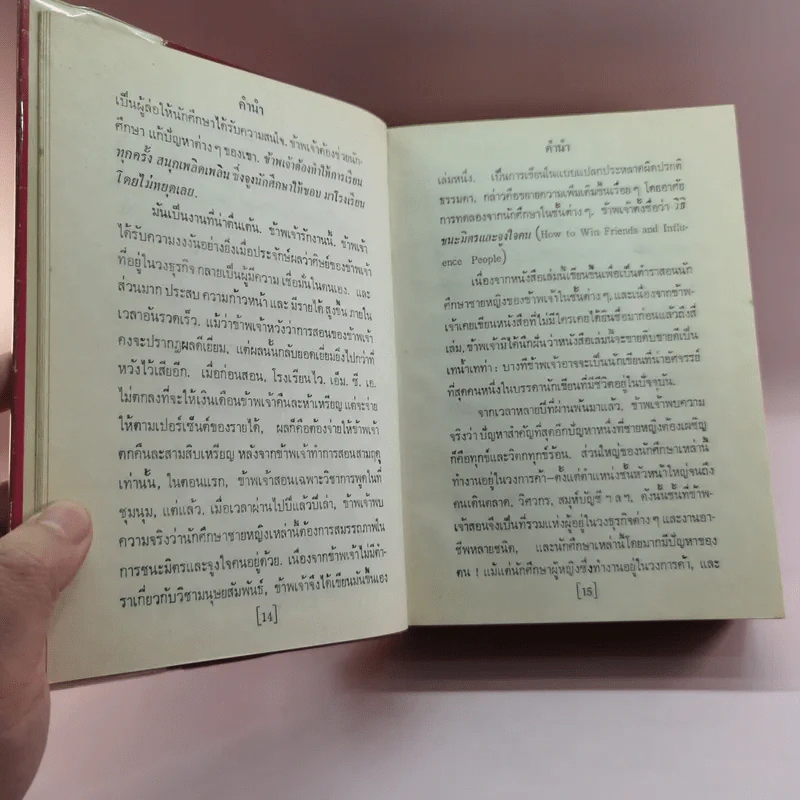 คำนำ
เป็นผู้ล่อให้นักศึกษาได้รับความสนใจ. ข้าพเจ้าต้องช่วยนัก-
ศึกษา แก้ปัญหาต่าง ๆ ของเขา. ข้าพเจ้าต้องทำให้การเรียน
ทุกครั้ง สนุกเพลิดเพลิน ซึ่งจูงนักศึกษาให้ชอบ มาโรงเรียน
โดยไม่หยุดเลย.
มันเป็นงานที่น่าตื่นเต้น. ข้าพเจ้ารักงานนี้. ข้าพเจ้า
ได้รับความงงงันอย่างยิ่งเมื่อประจักษ์ผลว่าศิษย์ของข้าพเจ้า
ที่อยู่ในวงธุรกิจ กลายเป็นผู้มีความ เชื่อมั่นในตนเอง. และ
ส่วนมาก ประสบ ความก้าวหน้า และ มีรายได้ สูงขึ้น ภายใน
เวลาอันรวดเร็ว. แม้ว่าข้าพเจ้าหวังว่าการสอนของข้าพเจ้า
คงจะปรากฏผลดีเยี่ยม, แต่ผลนั้นกลับยอดเยี่ยมยิ่งไปกว่าที่
หวังไว้เสียอีก. เมื่อก่อนสอน, โรงเรียน ไว. เอ็ม. ซี. เอ.
ไม่ตกลงที่จะให้เงินเดือนข้าพเจ้าคืนละห้าเหรียญ แต่จะจ่าย
ให้ตามเปอร์เซ็นต์ของรายได้, ผลก็คือต้องจ่ายให้ข้าพเจ้า
ตกคืนละสามสิบเหรียญ หลังจากข้าพเจ้าทำการสอนสามฤดู
เท่านั้น, ในตอนแรก, ข้าพเจ้าสอนเฉพาะวิชาการพูดในที่
ชุมนุม, แต่แล้ว, เมื่อเวลาผ่านไปปีแล้วปีเล่า, ข้าพเจ้าพบ
ความจริงว่านักศึกษาชายหญิงเหล่านี้ต้องการสมรรถภาพใน
การชนะมิตรและจูงใจคนอยู่ด้วย. เนื่องจากข้าพเจ้าไม่มีตำ-
ราเกี่ยวกับวิชามนุษยสัมพันธ์, ข้าพเจ้าจึงได้เขียนมันขึ้นเอง
[14]
คำนำ
เล่มหนึ่ง. เป็นการเขียนในแบบแปลกประหลาดผิดปรกติ
ธรรมดา. กล่าวคือขยายความเพิ่มเติมขึ้นเรื่อย ๆ โดยอาศัย
การทดลองจากนักศึกษาในชั้นต่าง ๆ. ข้าพเจ้าตั้งชื่อว่า วิธี
ชนะมิตรและจูงใจคน (How to Win Friends and Influ-
ence People)
เนื่องจากหนังสือเล่มนี้เขียนขึ้นเพื่อเป็นตำราสอนนัก
ศึกษาชายหญิงของข้าพเจ้าในชั้นต่าง ๆ, และเนื่องจากข้าพ-
เจ้าเคยเขียนหนังสือที่ไม่มีใครเคยได้ยินชื่อมาก่อนแล้วถึงสี่
เล่ม, ข้าพเจ้ามิได้นึกฝันว่าหนังสือเล่มนี้จะขายดิบขายดีเป็น
เทน้ำเทท่า : บางทีข้าพเจ้าอาจจะเป็นนักเขียนที่น่าอัศจรรย์
ที่สุดคนหนึ่งในบรรดานักเขียนที่มีชีวิตอยู่ในปัจจุบัน.
จากเวลาหลายปีที่ผ่านพ้นมาแล้ว, ข้าพเจ้าพบความ
จริงว่า ปัญหาสำคัญที่สุดอีกปัญหาหนึ่งที่ชายหญิงต้องเผชิญ
ก็คือทุกข์และวิตกทุกข์ร้อน. ส่วนใหญ่ของนักศึกษาเหล่านี้
ทำงานอยู่ในวงการค้า—ตั้งแต่ตำแหน่งชั้นหัวหน้าใหญ่จนถึง
คนเดินตลาด, วิศวกร, สมุห์บัญชี ฯ ล ฯ. ดังนั้นชั้นที่ข้าพ-
เจ้าสอนจึงเป็นที่รวมแห่งผู้อยู่ในวงธุรกิจต่าง ๆ และงานอา-
ชีพหลายชนิด, และนักศึกษาเหล่านี้โดยมากมีปัญหาของ
ตน ! แม้แต่นักศึกษาผู้หญิงซึ่งทำงานอยู่ในวงการค้า, และ
[15]